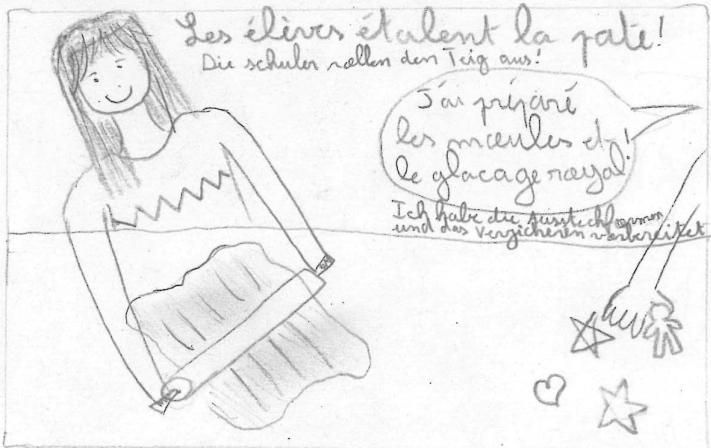 Les élèves étalent la pate!
Die schuler rollen den Teig aus!
J'ai préparé
les moules et
le glacage royal!
Ich habe die Ausstechformen
und das verzicheren vorbereitet